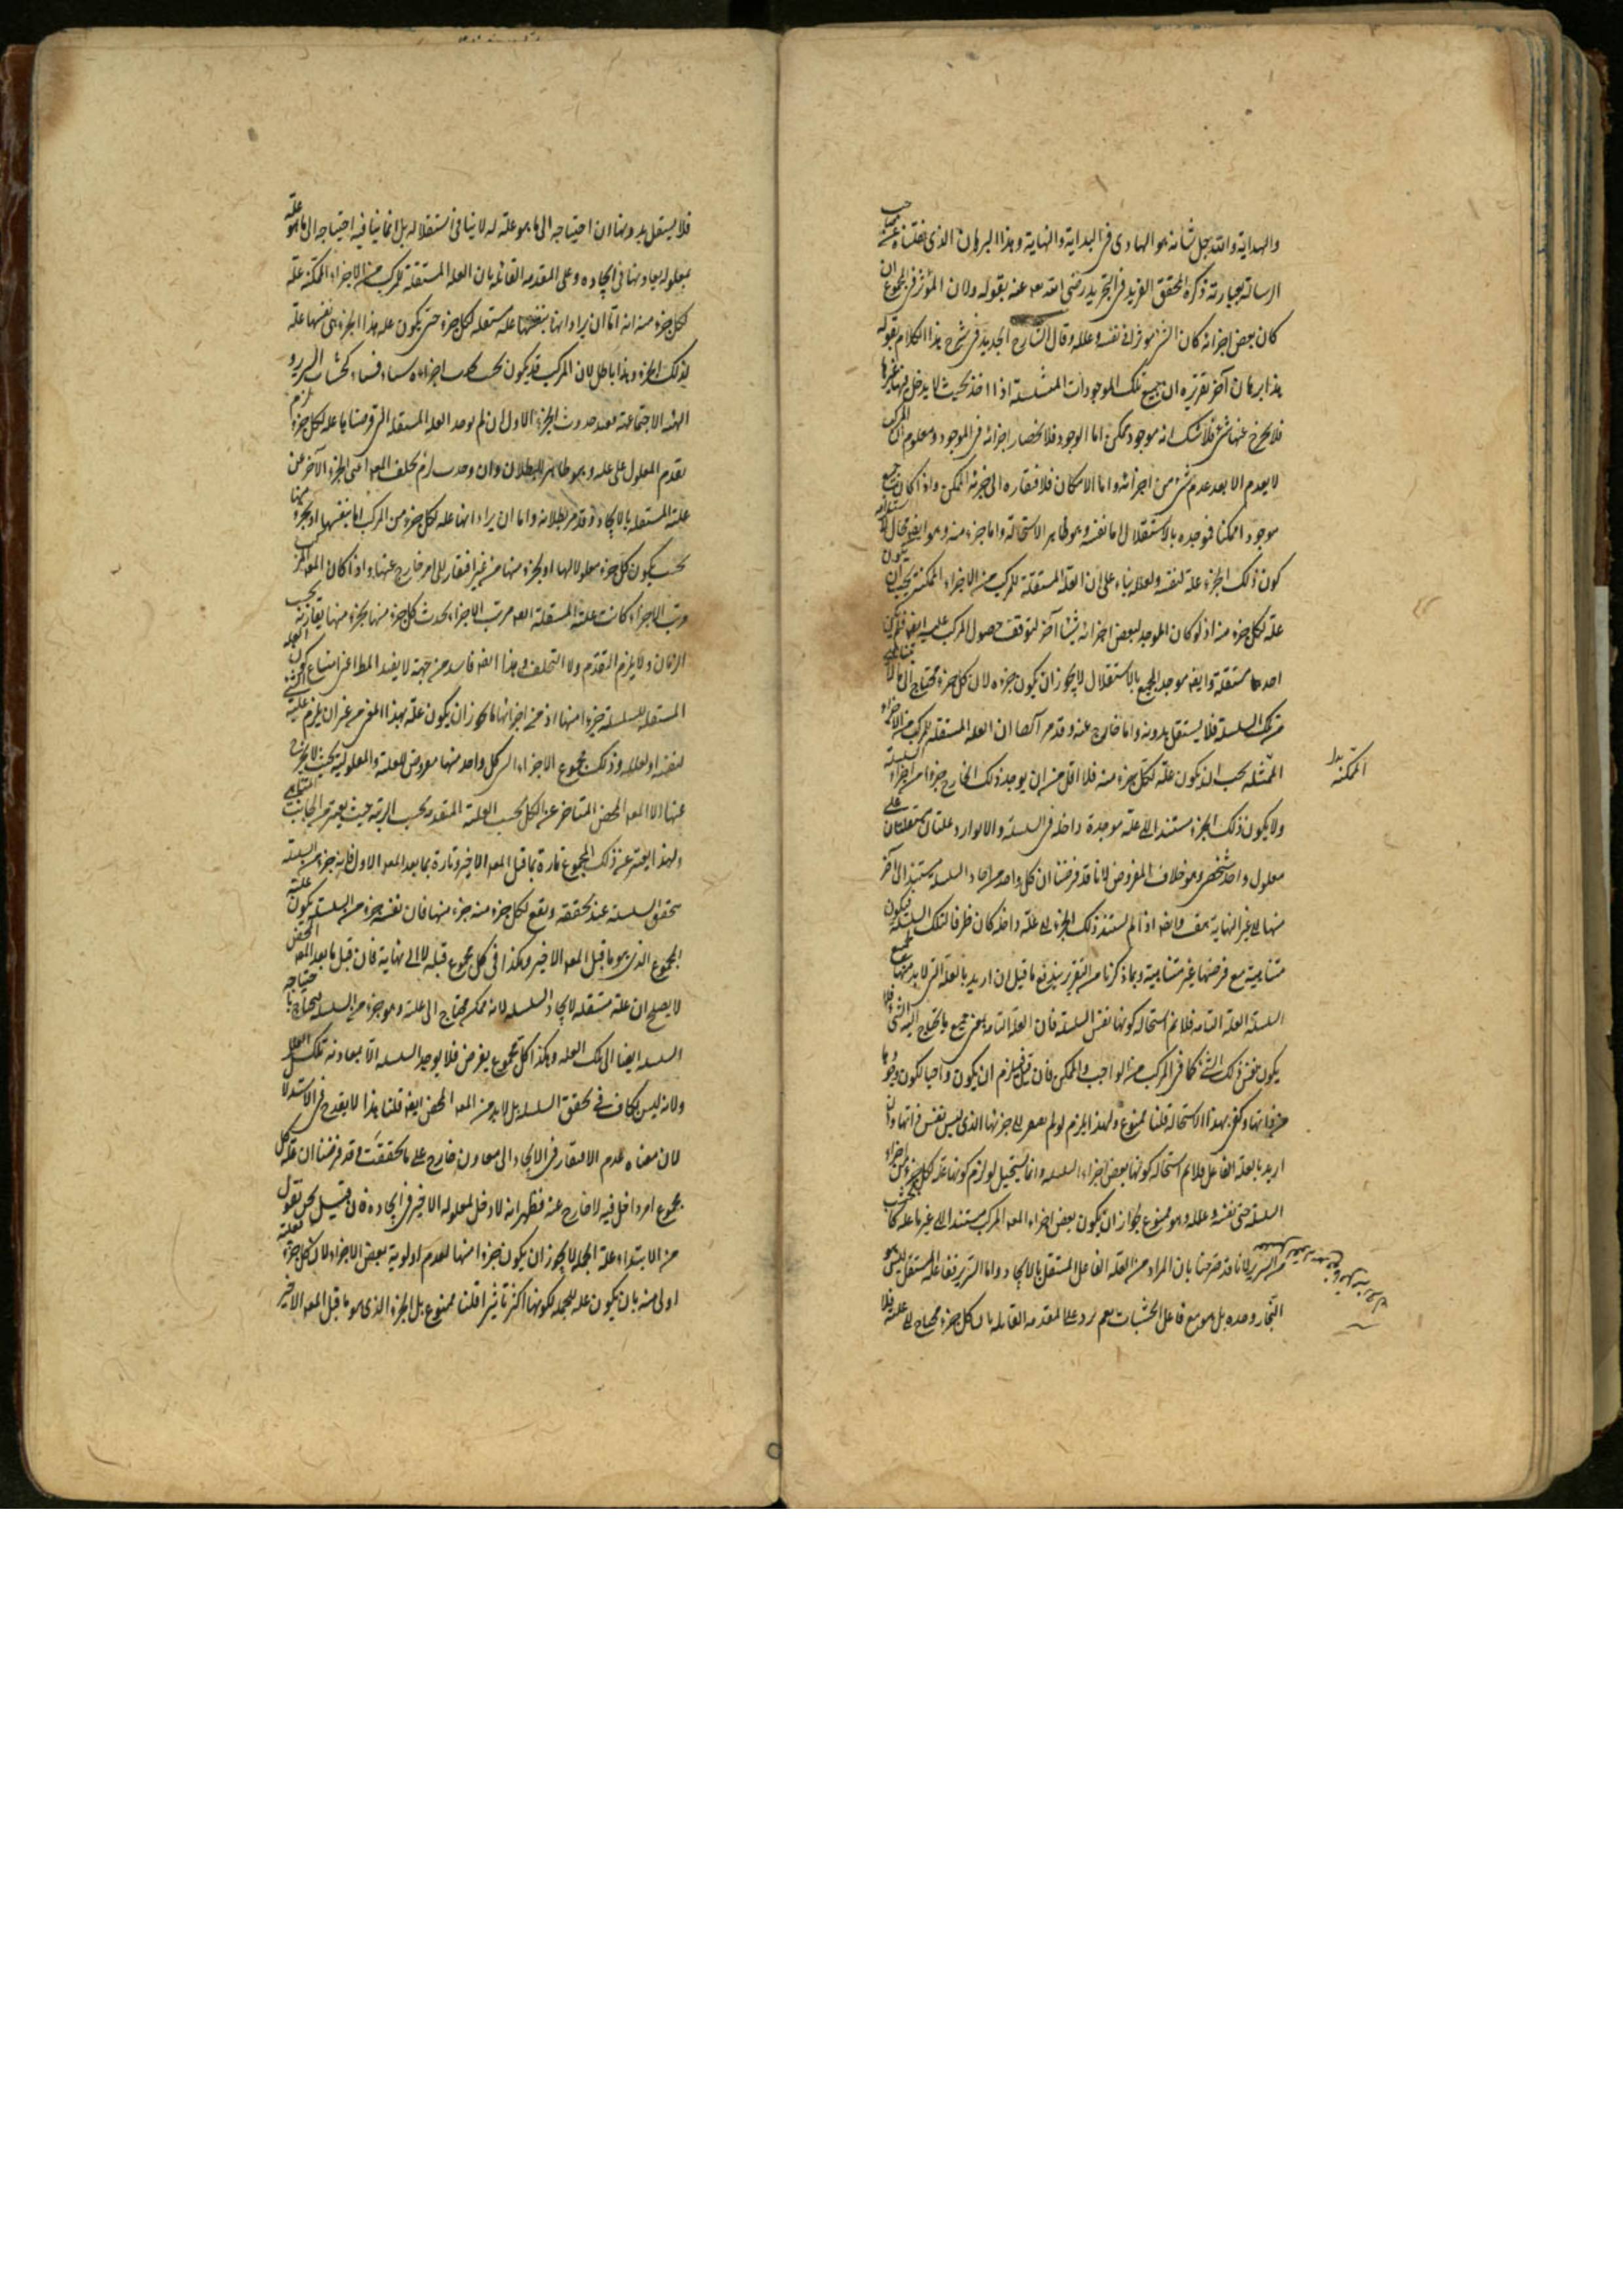 والهداية والله جل شأنه هو الهادى فى البداية والنهاية وهذا البرهان الذى نقلناه عن صاحب
الرسالة بعبارته ذكره المحقق الفريد فى التجريد رضى الله عنه بقوله ولان المؤثر فى المجموع ان
كان بعض اجزائه كان الشئ مؤثرا فى نفسه وعلله وقال الشارح الجديد فى شرح هذا الكلام بقوله
هذا برهان آخر تقريره ان جميع تلك الموجودات المتسلسلة اذا اخذ بحيث لا يدخل فيها غيرها
فلا يخرج عنها شئ فلا شك انه موجود ممكن اما الوجود فلانحصار اجزائه فى الموجود ومعلوم ان المركب
لا يعدم الا بعدم شئ من اجزائه واما الامكان فلافتقاره الى جزئه الممكن واذا كان جميع
موجودا ممكنا فموجده بالاستقلال اما نفسه وهو ظاهر الاستحالة واما جزء منه وهو ايضا محال لاستلزامه
كون ذلك الجزء علة لنفسه ولعلله بناء على ان العلة المستقلة للمركب من الاجزاء الممكنة يجب ان يكون
علة لكل جزء منه اذ لو كان الموجد لبعض اجزائه شيئا آخر لتوقف حصول المركب عليه ايضا فلم يكن
احدهما مستقلة وايضا موجد الجميع بالاستقلال لا يجوز ان يكون جزءه لان كل جزء محتاج الى ما لا يتناهى
من تلك السلسلة فلا يستقل بدونه واما خارج عنه وقد مر آنفا ان العلة المستقلة للمركب من الاجزاء
الممثلة يجب ان يكون علة لكل جزء منه فلا اقل من ان يوجد ذلك الخارج جزءا من اجزاء السلسلة
الممكنة بدل
ولا يكون ذلك الجزء مستندا الى علة موجدة داخلة فى السلسلة والا لوارد علتان مستقلتان على
معلول واحد شخصى وهو خلاف المفروض لانا قد فرضنا ان كل واحد من احاد السلسلة مستند الى آخر
منها الى غير النهاية هف وايضا اذا لم يستند ذلك الجزء الى علة داخلة كان طرفا لتلك السلسلة فيكون
متناهية مع فرضها غير متناهية وبما ذكرنا من التقرير يندفع ما قيل ان اريد بالعلة التى لا بد منها لجميع
السلسلة العلة التامة فلا نم استحالة كونها نفس السلسلة فان العلة التامة بمعنى جميع ما يحتاج اليه الشئ قد
يكون نفس ذلك الشئ كما فى المركب من الواجب والممكن فان قيل فيلزم ان يكون واجبا لكون وجودها
من ذاتها وكفى بهذا الاستحالة قلنا ممنوع وانما يلزم لو لم يفتقر الى جزئها الذى ليس نفس ذاتها وان
اريد بالعلة الفاعل فلا نم استحالة كونها بعض اجزاء السلسلة وانما يستحيل لو لزم كونها علة لكل جزء من اجزاء
السلسلة حتى نفسه وعلله وهو ممنوع لجواز ان يكون بعض اجزاء المعلول المركب مستندا الى غير فاعله كخشب
من السرير لانا قد صرحنا بان المراد من العلة الفاعل المستقل بالايجاد واما السرير ففاعله المستقل ليس هو
النجار وحده بل هو مع فاعل الخشبات نعم يرد على المقدمة القائلة بان كل جزء محتاج الى علته فلا
فلا يستقل بدونها ان احتياجه الى ما هو علة له لا ينافى استقلاله بل انما ينافيه احتياجه الى ما هو علة
لمعلوله يعاونها فى ايجاده وعلى المقدمة القائلة بان العلة المستقلة للمركب من الاجزاء الممكنة علة
لكل جزء منه انه اما ان يراد انها بنفسها علة مستقلة لكل جزء حتى يكون علة هذا الجزء هى بنفسها علة
لذلك الجزء وهذا باطل لان المركب قد يكون بحيث يحدث اجزاؤه شيئا فشيئا كخشب السرير و
الهيئة الاجتماعية فعند حدوث الجزء الاول ان لم يوجد العلة المستقلة التى فرضناها علة لكل جزء لزم
تقدم المعلول على علته وهو ظاهر البطلان وان وجدت لزم تخلف المعلول اعنى الجزء الآخر عن
علته المستقلة بالايجاد وقد مر بطلانه واما ان يراد انها علة لكل جزء من المركب اما بنفسها او بجزء منها
بحيث يكون كل جزء معلولا لها او لجزء منها من غير افتقار الى امر خارج عنها واذا كان المعلول المركب
مرتب الاجزاء كانت علته المستقلة ايضا مرتب الاجزاء يحدث كل جزء منها بجزء منها يقارنه بحسب
الزمان ولا يلزم التقدم ولا التخلف وهذا ايضا فاسد من جهة لا يفيد المط اعنى امتناع كون العلة
المستقلة للسلسلة جزءا منها اذ من اجزائها ما يجوز ان يكون علة بهذا المعنى من غير ان يلزم علية الشئ
لنفسه او لعلله وذلك مجموع الاجزاء التى كل واحد منها معروض للعلية والمعلولية بحيث لا يخرج
عنها الا المعلول المحض المتأخر عن الكل بحسب العلية المتقدم بحسب الرتبة حيث يعتبر من الجانب المتناهى
ولهذا يعبر عن ذلك المجموع تارة بما قبل المعلول الاخير وتارة بما بعد المعلول الاول فانه جزء من السلسلة
يتحقق السلسلة عند تحققه ويقع لكل جزء منه جزء منها فان نفسه جزء من السلسلة يكون علية
المجموع الذى هو ما قبل المعلول الاخير وهكذا فى كل مجموع قبله لا الى نهاية فان قيل ما بعد المعلول المحض
لا يصلح ان علة مستقلة لايجاد السلسلة لانه ممكن محتاج الى علة وهو جزء من السلسلة يحتاج
السلسلة ايضا الى تلك العلة وهكذا كل مجموع يفرض فلا يوجد السلسلة الا بمعاونة تلك العلل
ولانه ليس بكاف فى تحقق السلسلة بل لا بد من المعلول المحض ايضا قلنا هذا لا يقدح فى الاستقلال
لان معناه عدم الافتقار فى الايجاد الى معاون خارج على ما تحققت وقد فرضنا ان علة كل
مجموع امر داخل فيه لا خارج عنه فظهر انه لا دخل لمعلوله الاخير فى ايجاده فان قيل نحن نقول
من الابتداء علة الجملة لا يجوز ان يكون جزءا منها لعدم اولوية بعض الاجزاء لان كل جزء فعلته
اولى منه بان يكون علة للجملة لكونها اكثر تأثيرا قلنا ممنوع بل الجزء الذى هو ما قبل المعلول الاخير